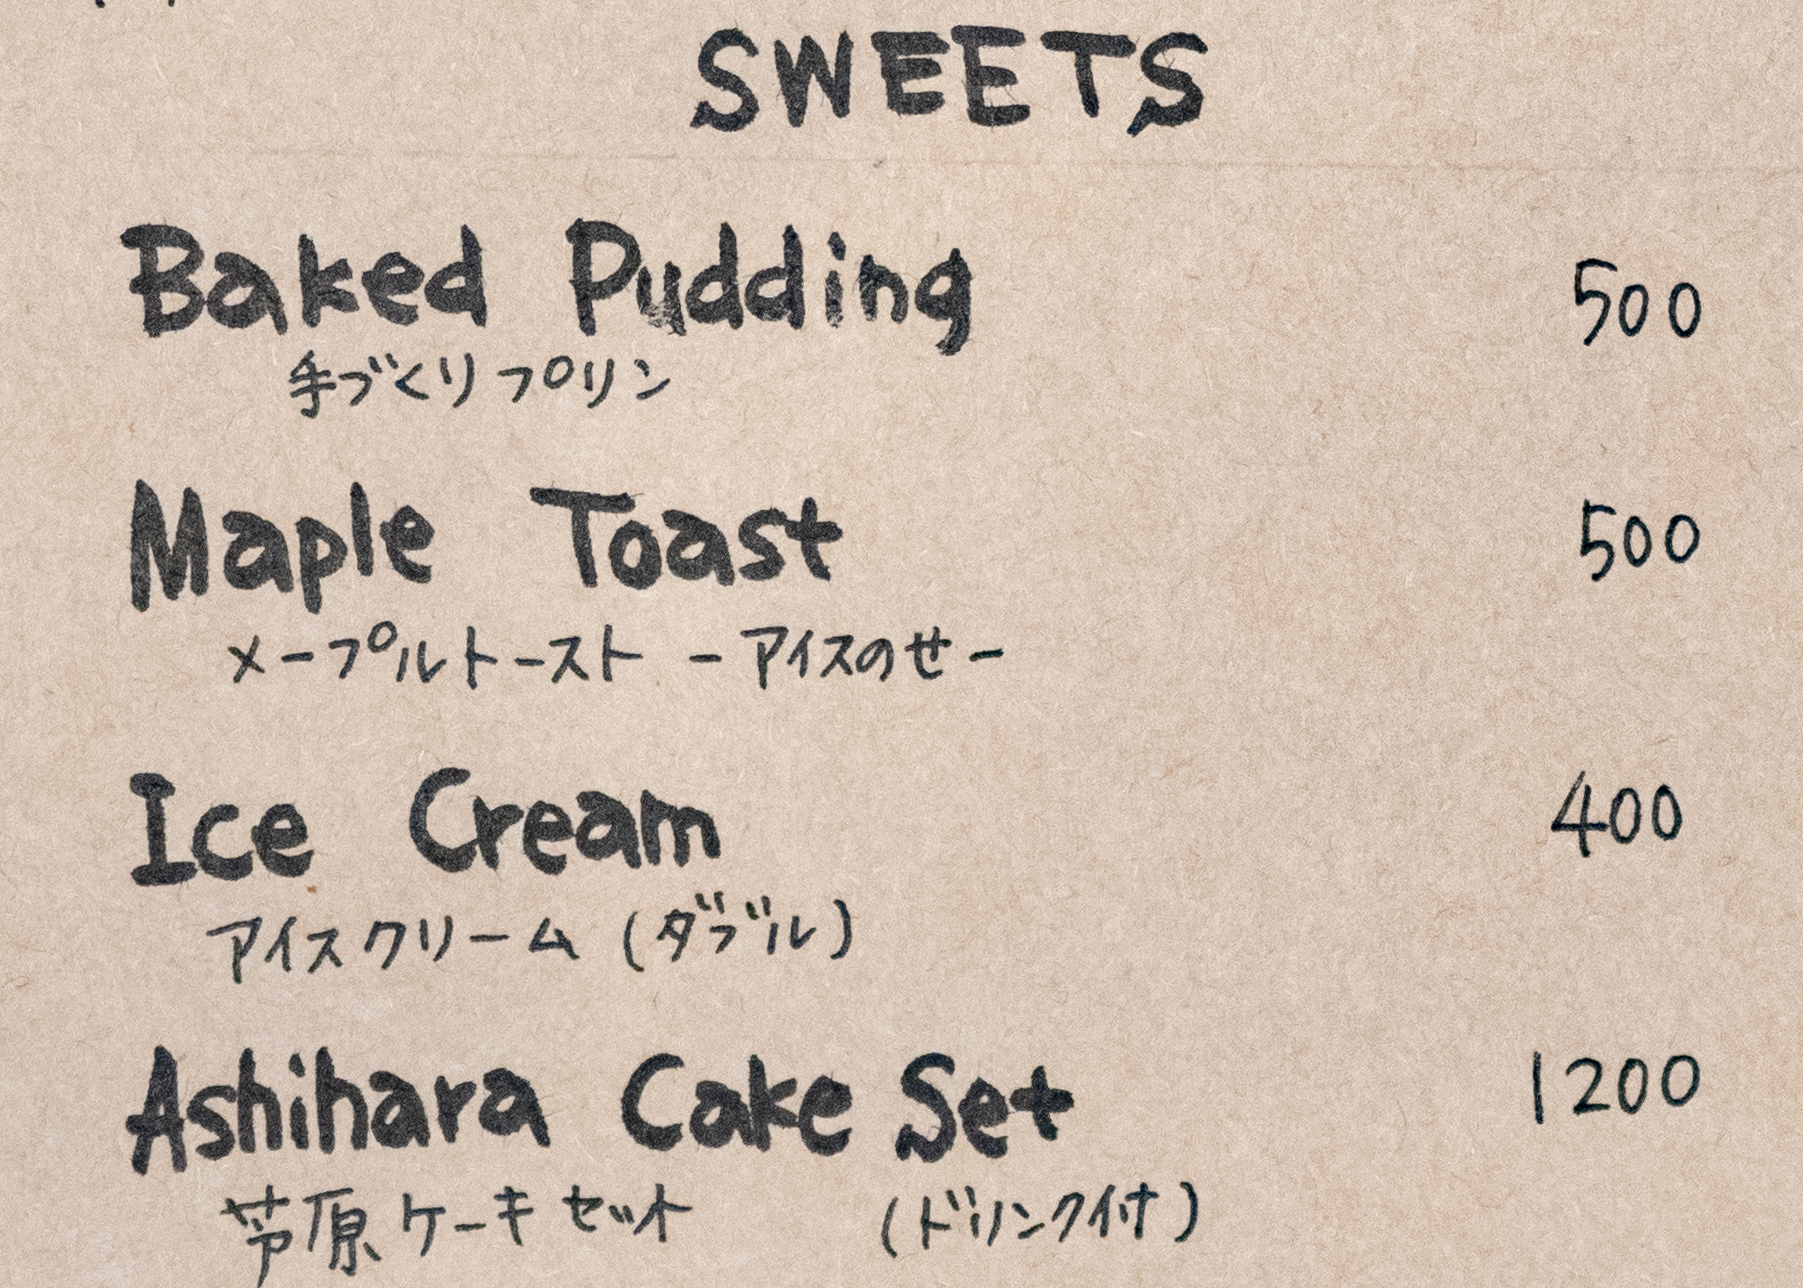 SWEETS
Baked Pudding 500
手づくりプリン
Maple Toast 500
メープルトースト －アイスのせ－
Ice Cream 400
アイスクリーム (ダブル)
Ashihara Cake Set 1200
芦原ケーキセット (ドリンク付)